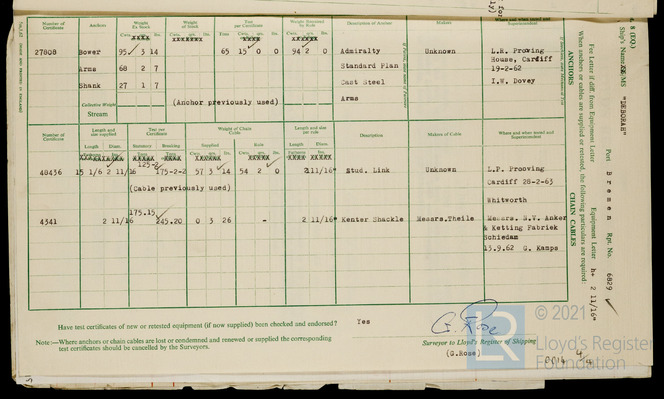 Number of Certificate
Anchors
Weight Ex Stock
Weight of Stock
Test per Certificate
Weight Required by Rule
Description of Anchor
Makers
Where and when tested and Superintendent
Cwts. qrs. lbs.
Cwts. qrs. lbs.
Tons cwts. qrs. lbs.
Cwts. qrs. lbs.
27808 Bower 95 3 14 65 15 0 0 94 2 0 Admiralty Unknown L.R. Proving
Arms 68 2 7 Standard Plan House, Cardiff
Shank 27 1 7 Cast Steel 19-2-62
Collective Weight (Anchor previously used) Arms I.W. Dovey
Stream
Number of Certificate
Length and size supplied
Test per Certificate
Weight of Chain Cable
Length and size per rule
Description
Makers of Cable
Where and when tested and Superintendent
Length Diam. Statutory Breaking Supplied Rule Length Diam.
125-2
48436 15 1/6 2 11/16 175-2-2 57 3 14 54 2 0 2 11/16" Stud. Link Unknown L.P. Prooving
(Cable previously used) Cardiff 28-2-63
Whitworth
175.15
4341 2 11/16 245.20 0 3 26 - 2 11/16" Kenter Shackle Messrs.Theile Messrs. S.V. Anker
& Ketting Fabriek
Schiedam
15.9.62 G. Kamps
Have test certificates of new or retested equipment (if now supplied) been checked and endorsed? Yes
Note:—Where anchors or chain cables are lost or condemned and renewed or supplied the corresponding
test certificates should be cancelled by the Surveyors.
G. Rose
Surveyor to Lloyd's Register of Shipping
(G.Rose)
8 (EQ.)
Ship's Name MS "DEBORAH" Port bremen Rpt. No. 6829
Fee Letter if diff. from Equipment Letter Equipment Letter h+ 2 11/16"
When anchors or cables are supplied or retested, the following particulars are required:
ANCHORS
CHAIN CABLES
© 2021
LR
Lloyd's Register
Foundation